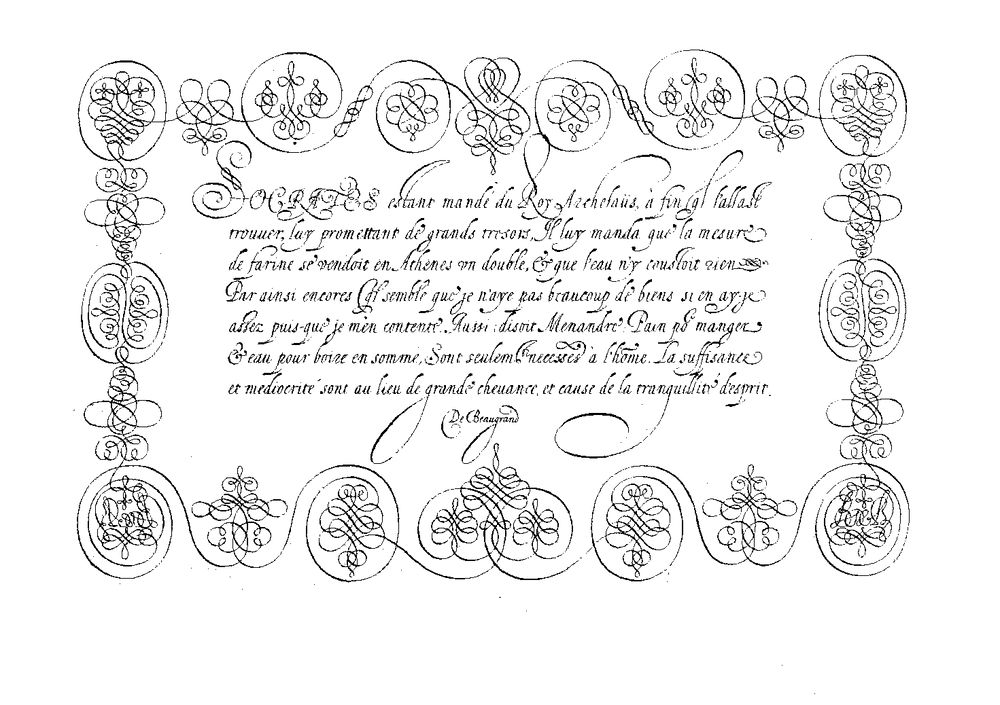 SOCRATES estant mandé du Roy Archelaüs, à fin ql l'allast
trouver, luy promettant de grands tresors, Il luy manda que la mesure
de farine se vendoit en Athenes un double, & que l'eau n'y coustoit rien
Par ainsi encores ql semble que je n'aye pas beaucoup de biens si en ay-je
assez puis-que je m'en contente. Aussi disoit Menandre Pain po manger
& eau pour boire en somme, Sont seulemt necesses à l'hõme. La suffisance
et mediocrité sont au lieu de grande chevance, et cause de la tranquillité d'esprit.
De Beaugrand